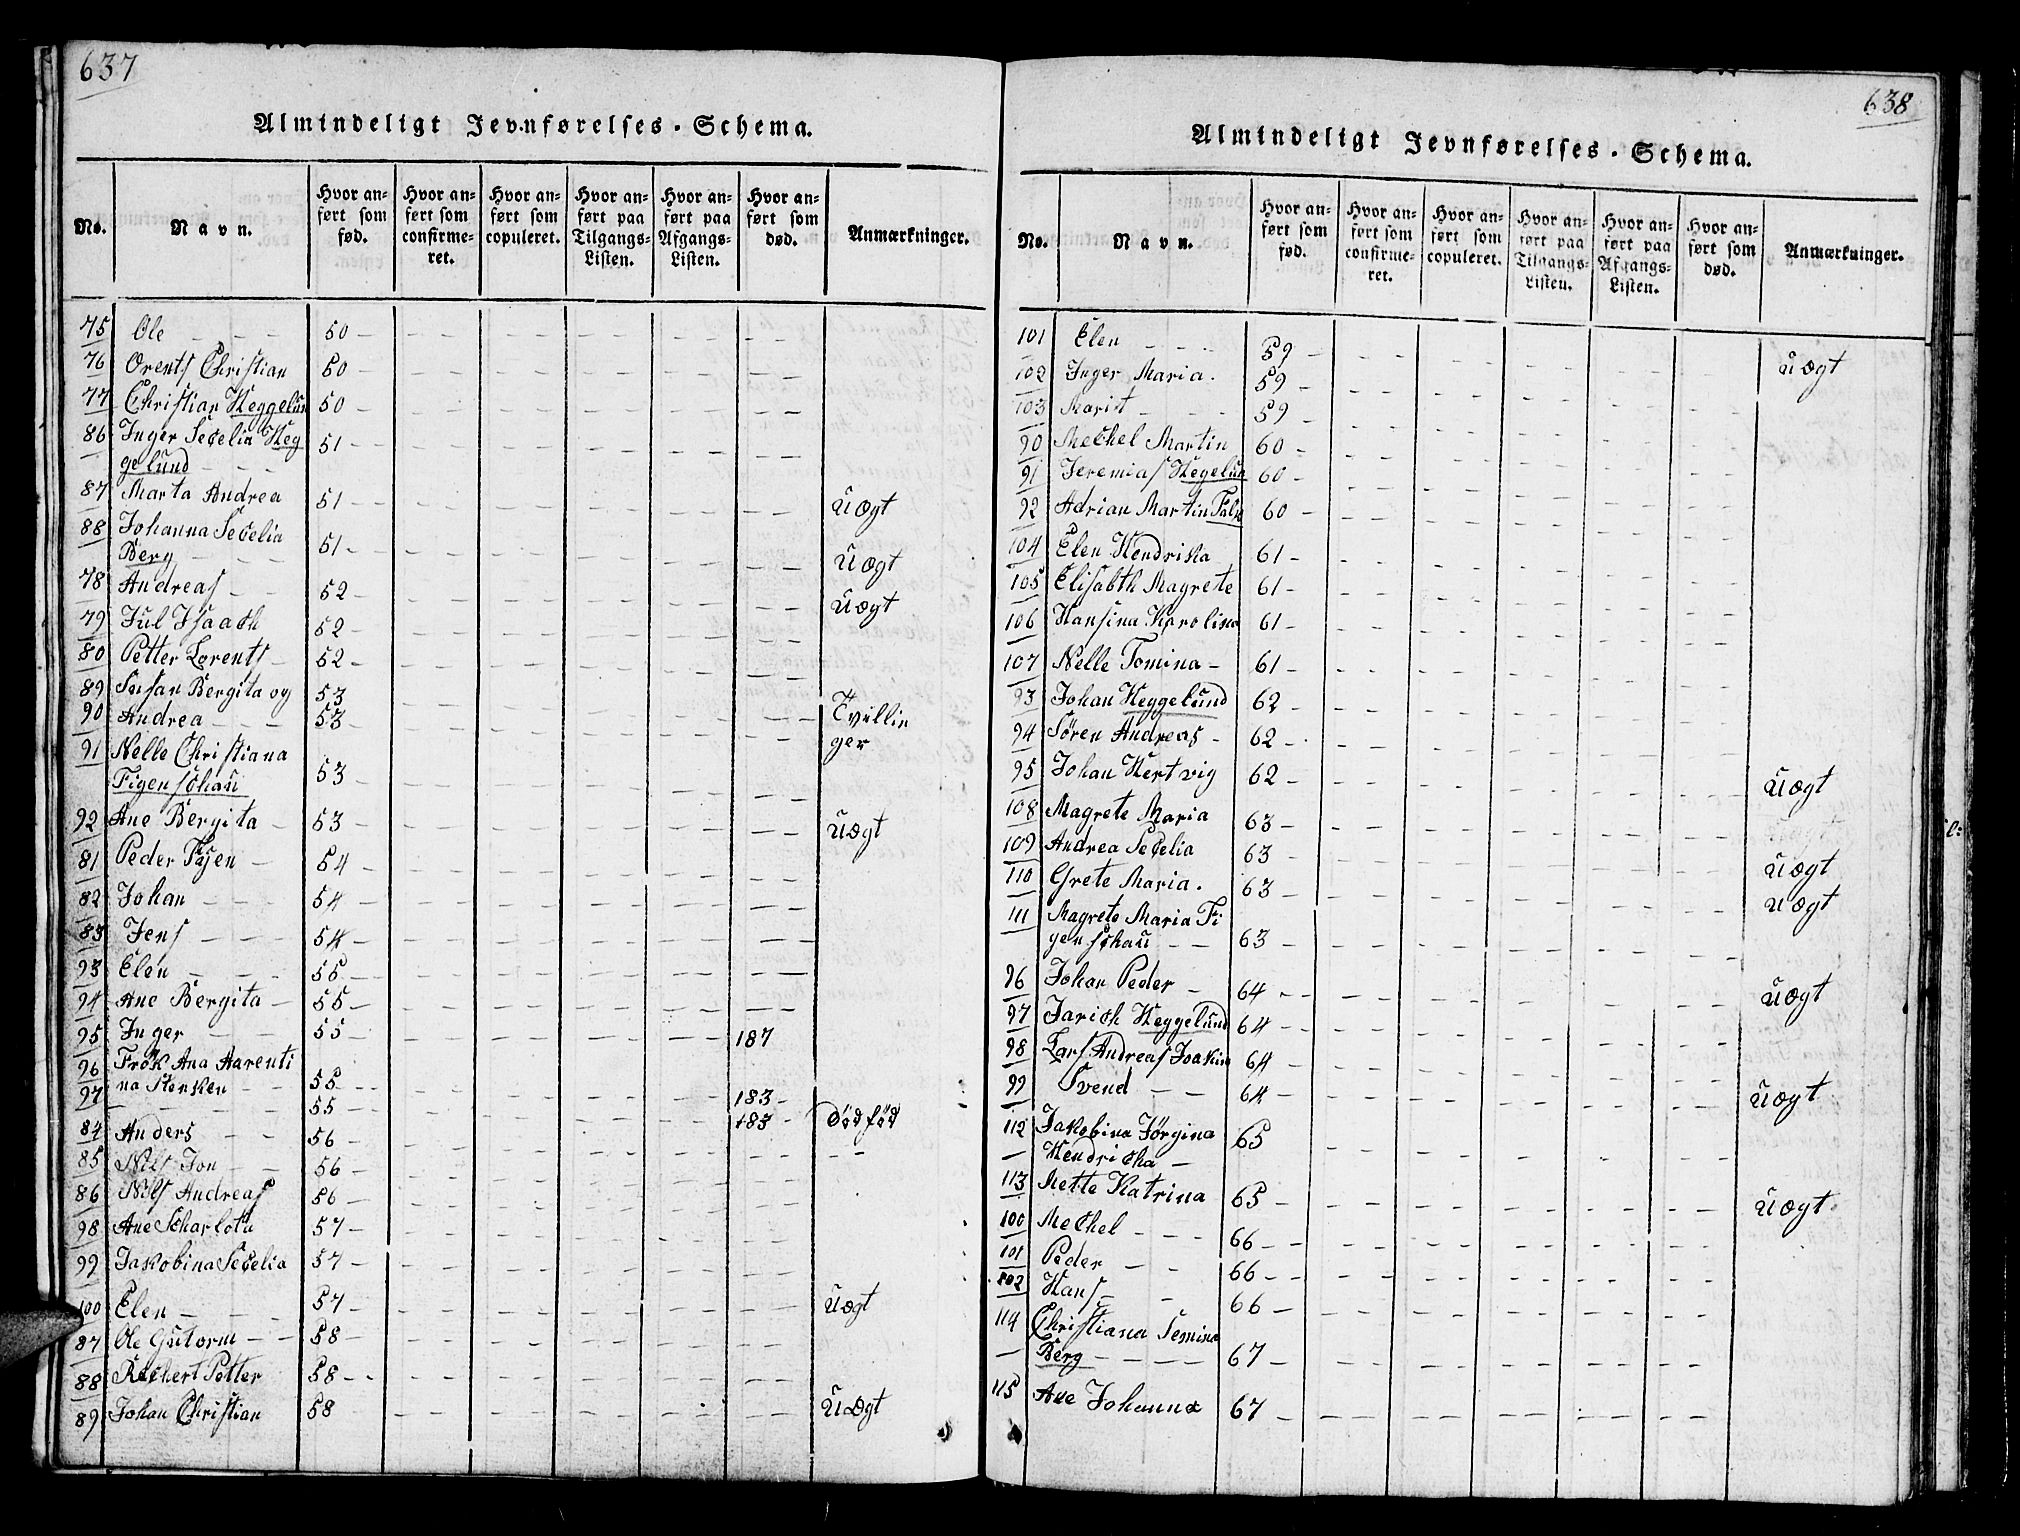 637
Almindeligt Jevnførelses-Schema.
No. Navn. Hvor anført som fød. Hvor anført som confirmeret. Hvor anført som copuleret. Hvor anført paa Tilgangs-Listen. Hvor anført paa Afgangs-Listen. Hvor anført som død. Anmærkninger.
75 Ole 50
76 Orents Christian 50
77 Christian Heggelun 50
86 Inger Secelia Heg
gelund 51
87 Marta Andrea 51 Uægt
88 Johanna Secelia
Berg 51 Uægt
78 Andreas 52 Uægt
79 Jul Isaach 52
80 Petter Lorents 52
89 Susan Bergita og 53 Tvillin
90 Andrea 53 ger
91 Nelle Christiana
Figenschau 53
92 Ane Bergita 53 Uægt
81 Peder 54
82 Johan 54
83 Jens 54
93 Elen 55
94 Ane Bergita 55
95 Inger 55 187
96 Frök Ana Aarenti
na Stenken 55 183
97 55 183 Dödföd
84 Anders 56
85 Nils Jon 56
86 Nils Andreas 56
98 Ane Scharlota 57
99 Jakobina Secelia 57
100 Elen 57 Uægt
87 Ole Gutorm 58
88 Rechert Petter 58
89 Johan Christian 58 Uægt
638
Almindeligt Jevnførelses-Schema.
No. Navn. Hvor anført som fød. Hvor anført som confirmeret. Hvor anført som copuleret. Hvor anført paa Tilgangs-Listen. Hvor anført paa Afgangs-Listen. Hvor anført som død. Anmærkninger.
101 Elen 59 Uægt
102 Inger Maria. 59
103 Marit 59
90 Mechel Martin 60
91 Jeremias Hegelun 60
92 Adrian Martin 60
104 Elen Hendrika 61
105 Elisabth Magrete 61
106 Hansina Karolina 61
107 Nelle Tomina 61
93 Johan Heggelund 62
94 Sören Andreas 62
95 Johan Hertvig 62 Uægt
108 Magrete Maria 63
109 Andrea Secelia 63 Uægt
110 Grete Maria. 63 Uægt
111 Magrete Maria Fi
genschau 63
96 Johan Peder 64 Uægt
97 Jarich Heggelund 64
98 Lars Andreas Joakim 64
99 Svend 64 Uægt
112 Jakobina Jörgina
Hendricha 65
113 Mette Katrina 65 Uægt
100 Mechel 66
101 Peder 66
102 Hans 66
114 Christiana Semina
Berg 67
115 Ane Johanna 67